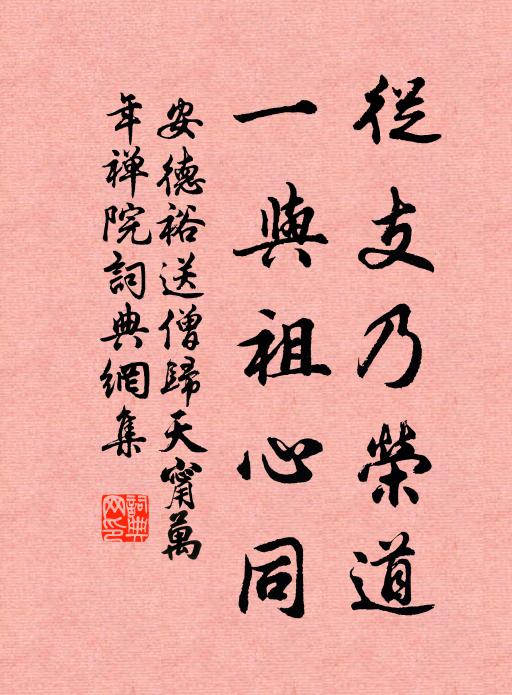 從支乃榮道
一與祖心同
安德裕送僧歸天甯萬
年禅院詞典網集
詞典
网印